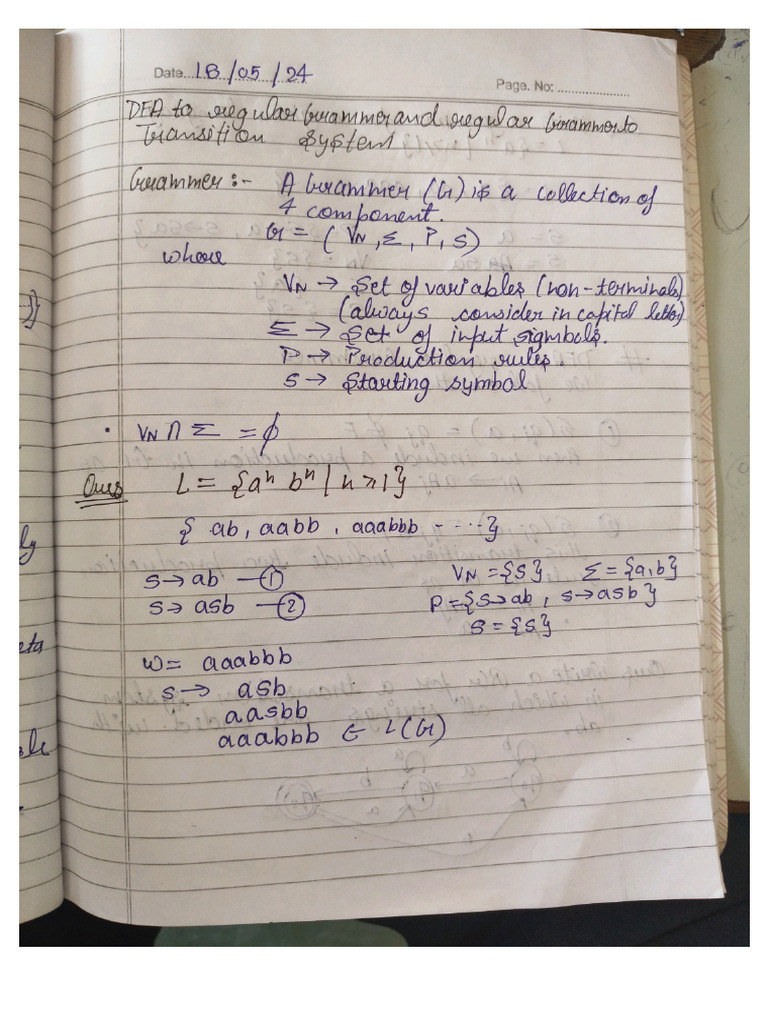 Date...18/05/24
Page. No: .....................
DFA to regular Grammer and regular Grammer to
Transition System
Grammer :- A Grammer (G) is a collection of
4 component.
G = (VN, Σ, P, S)
where
VN → Set of variables (non-terminals)
(always consider in capital letter)
Σ → Set of input sigmbols.
P → Production rules.
S → Starting symbol
• VN ∩ Σ = ϕ
Ques L = {aⁿ bⁿ | n ≥ 1}
{ ab, aabb, aaabbb - ---}
S → ab — ① VN = {S} Σ = {a,b}
S → asb — ② P = {S→ab, S→asb}
S = {S}
W = aaabbb
S → asb
aasbb
aaabbb ∈ L(G)